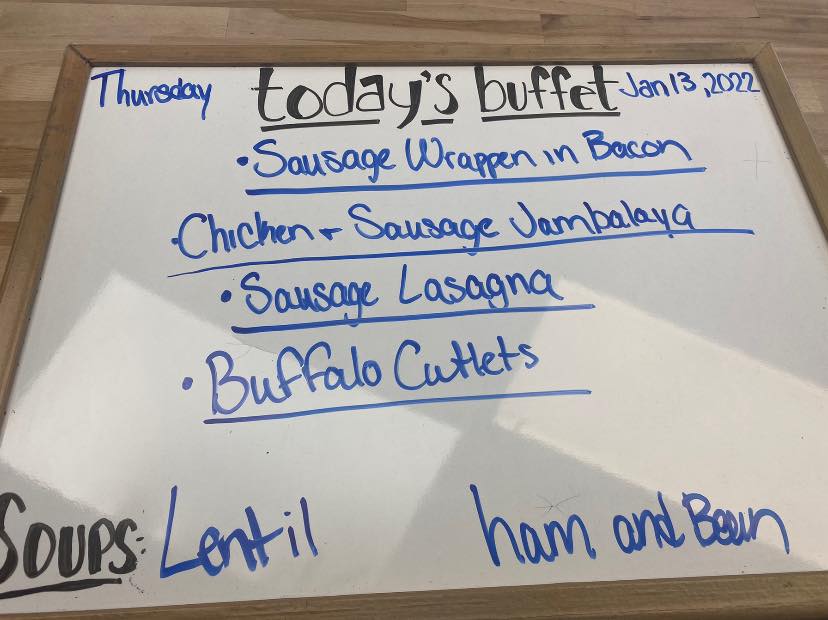 Thursday today's buffet Jan 13, 2022
• Sausage Wrappen in Bacon
• Chicken + Sausage Jambalaya
• Sausage Lasagna
• Buffalo Cutlets
SOUPS: Lentil ham and Bean